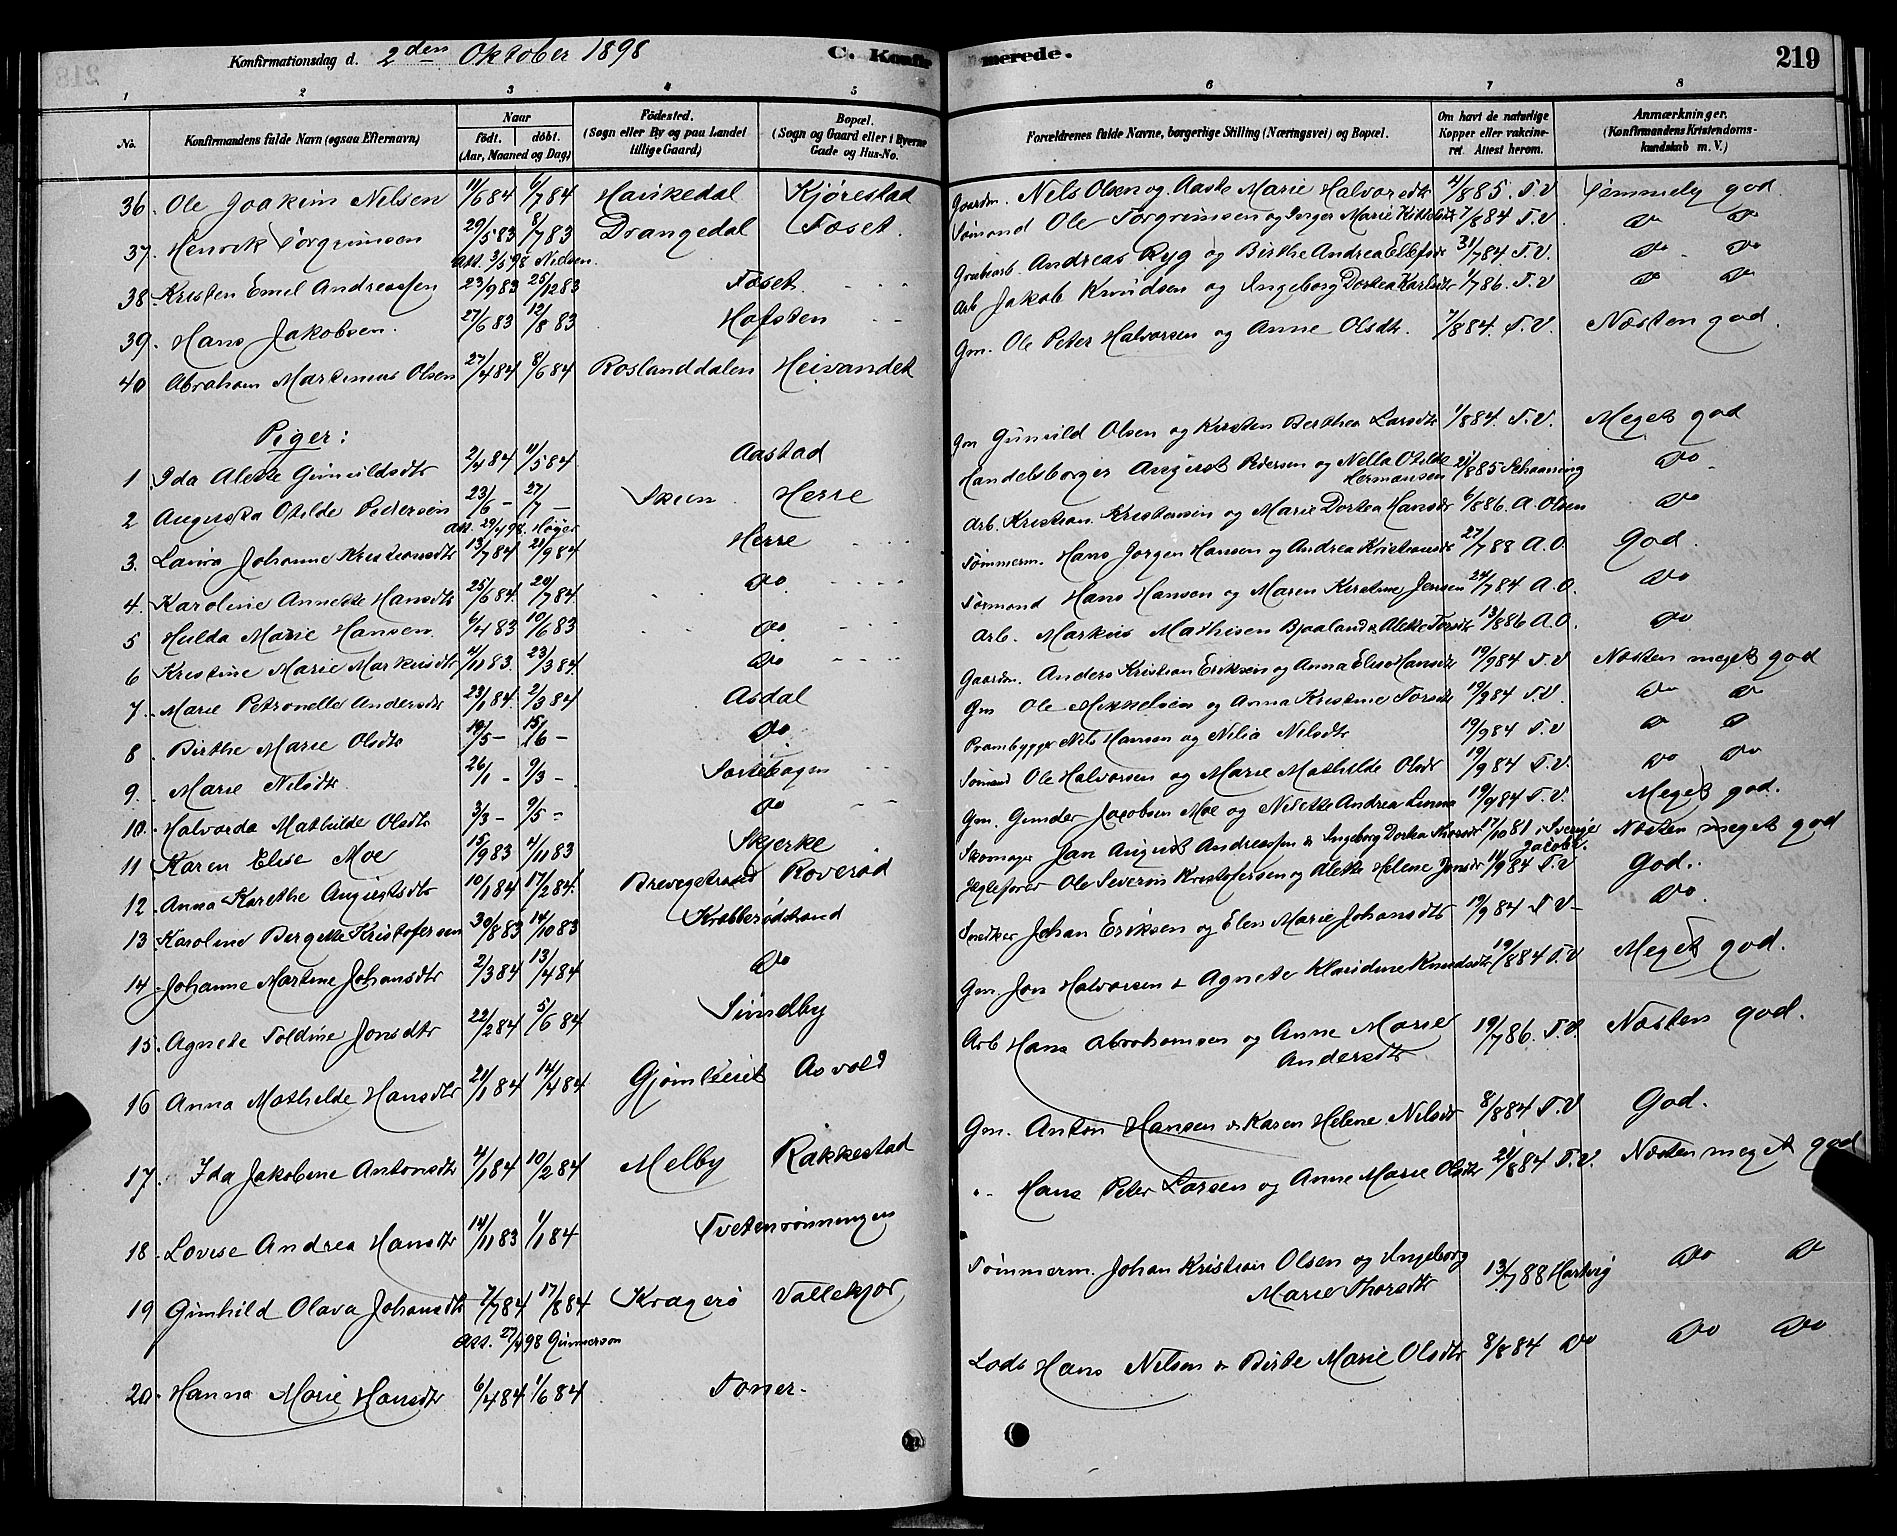 Konfirmationsdag d. 2den Oktober 1898 C. Konfir merede. 219
1 2 3 4 5 6 7 8
No. Konfirmandens fulde Navn (ogsaa Efternavn) Naar født. døbt. (Aar, Maaned og Dag) Fødested. (Sogn eller By og paa Landet tillige Gaard) Bopæl. (Sogn og Gaard eller i Byerne Gade og Hus-No. Forældrenes fulde Navne, borgerlige Stilling (Næringsvei) og Bopæl. Om havt de naturlige Kopper eller vakcineret. Attest herom. Anmærkninger. (Konfirmandens Kristendomskundskab m. V.)
36. Ole Joakim Nilsen 11/6 84 6/7 84 Hankedal Kjørestad Gaardm. Nils Olsen og Aaste Marie Halvorsdtr 4/8 85. T.V. Temmelig god.
37. Henrik Torgrimsen 29/5 83 8/7 83 Drangedal Foset. Sømand Ole Torgrimsen og Inger Marie 7/8 84 T.V. Do Do
Att. 3/5 98 Nielsen.
38. Kristen Emil Andreassen 23/9 83 25/12 83 Foset. Andreas Ryg og Birthe Andrea Ellefsdtr 31/7 84 T.V. Do Do
39. Hans Jakobsen. 27/6 83 12/8 83 Hafsten Arb Jakob Knudsen og Ingeborg Dortea Karlsdtr 1/7 86. T.V Do Do
40 Abraham Martinius Olsen 27/4 84 8/6 84 Roslanddalen Heivandet Gm. Ole Peter Halvorsen og Anne Olsdtr. 7/8 84. T.V. Næsten god.
Piger:
1 Ida Alette Gunuldsdtr 2/4 84 11/5 84 Aastad Gm Gunuild Olsen og Kirsten Berthea Larsdtr 1/8 84. T.V. Meget god
2 Augusta Otilde Pedersen 23/6 - 27/7 - Skien Herre Handelsborger August Pedersen og Nella Otilde Hermansen 21/8 85 Schaaning Do
Att. 29/4 98. Høyer
3. Laura Johanne Kristiansdtr 13/7 84 21/9 84 Herre Arb. Kristian Kristensen og Marie Dortea Hansdtr 6/8 86. A. Olsen Do
4. Karoline Annette Hansdtr 25/6 84. 20/7 84 Do. Tømmerm. Hans Jørgen Hansen og Andrea Kristiansdtr 27/7 88 A.O. God.
5 Hulda Marie Hansen 6/4 83 10/6 83 Do Sømand Hans Hansen og Maren Kirstine Jensen 24/7 84 A.O. Do
6 Kristine Marie Markusdtr 4/11 83. 23/3 84. Do Arb. Markus Mathisen Bjaaland & Alette Torsdtr 13/8 86 A.O. Do
7. Marie Petronelle Andersdtr 23/1 84 2/3 84 Asdal Gaardm. Anders Kristian Eriksen og Anna Elise Hansdtr 19/9 84 T.V Næsten meget god
8. Birthe Marie Olsdtr 19/5 - 15/6 - Do Gm Ole Mikkelsen og Anna Kristine Torsdtr 19/9 84 T.V. Do Do
9. Marie Nilsdtr. 26/1 - 9/3 - Sortebogen Prambygger Nils Hansen og Nilia Nilsdtr 19/9 84 T.V Do Do
10. Halvorda Mathilde Olsdtr 3/3 - 9/5 - Do Sømand Ole Halvorsen og Marie Mathilde Olsdtr 19/9 84 T.V. Do Do
11 Karen Elise Moe 15/9 83 4/11 83 Skjerke Gm. Gunder Jacobsen Moe og Nilette Andrea 19/9 84 T.V. Meget god.
12. Anna Karethe Augustsdtr 10/1 84 17/2 84. Brevigstrand Roverød Skomager Jan August Andreassen & Ingeborg Dortea Thorsdtr 17/10 81 i Sverige Næsten meget god
13 Karoline Bergette Kristofersen 30/8 83 14/10 83 Krabberødstrand Jægtefører Ole Severin Kristofersen og Alette Helene Jonsdtr 19/9 84 T.V God.
14. Johanne Martine Johansdtr 2/3 84 13/4 84 Do Snedker Johan Eriksen og Elen Marie Johansdtr 19/9 84 T.V- Do.
15. Agnete Toldine Jonsdtr 22/2 84 5/6 84 Sundby Gm. Jon Halvorsen & Agnete Klaudine Knudsdtr 19/8 84 T.V Meget god.
16 Anna Mathilde Hansdtr 21/1 84 14/4 84 Asvold Arb Hans Abrahamsen og Anne Marie Andersdtr 19/7 86. T.V. Næsten god.
17. Ida Jakobine Antonsdtr 4/1 84 10/2 84 Melby Rakkestad Gm. Anton Hansen & Karen Helene Nilsdtr 8/8 84 T.V God.
18. Lovise Andrea Hansdtr 14/11 83 1/1 84 Tvetenrønningen " Hans Peter Larsen og Anne Marie Olsdtr 21/8 84 T.V. Næsten meget god
19 Gunhild Olava Johansdtr 7/7 84 17/8 84 Kragerø Vallekjær Tømmerm. Johan Kristian Olsen og Ingeborg Marie Thorsdtr 13/7 88 Hartvig Do Do
Att. 27/4 98 Gunnerson
20. Hanna Marie Hansdtr 6/4 84 1/6 84 Toner. Lods Hans Nilsen & Birte Marie Olsdtr 8/8 84 Do Do Do